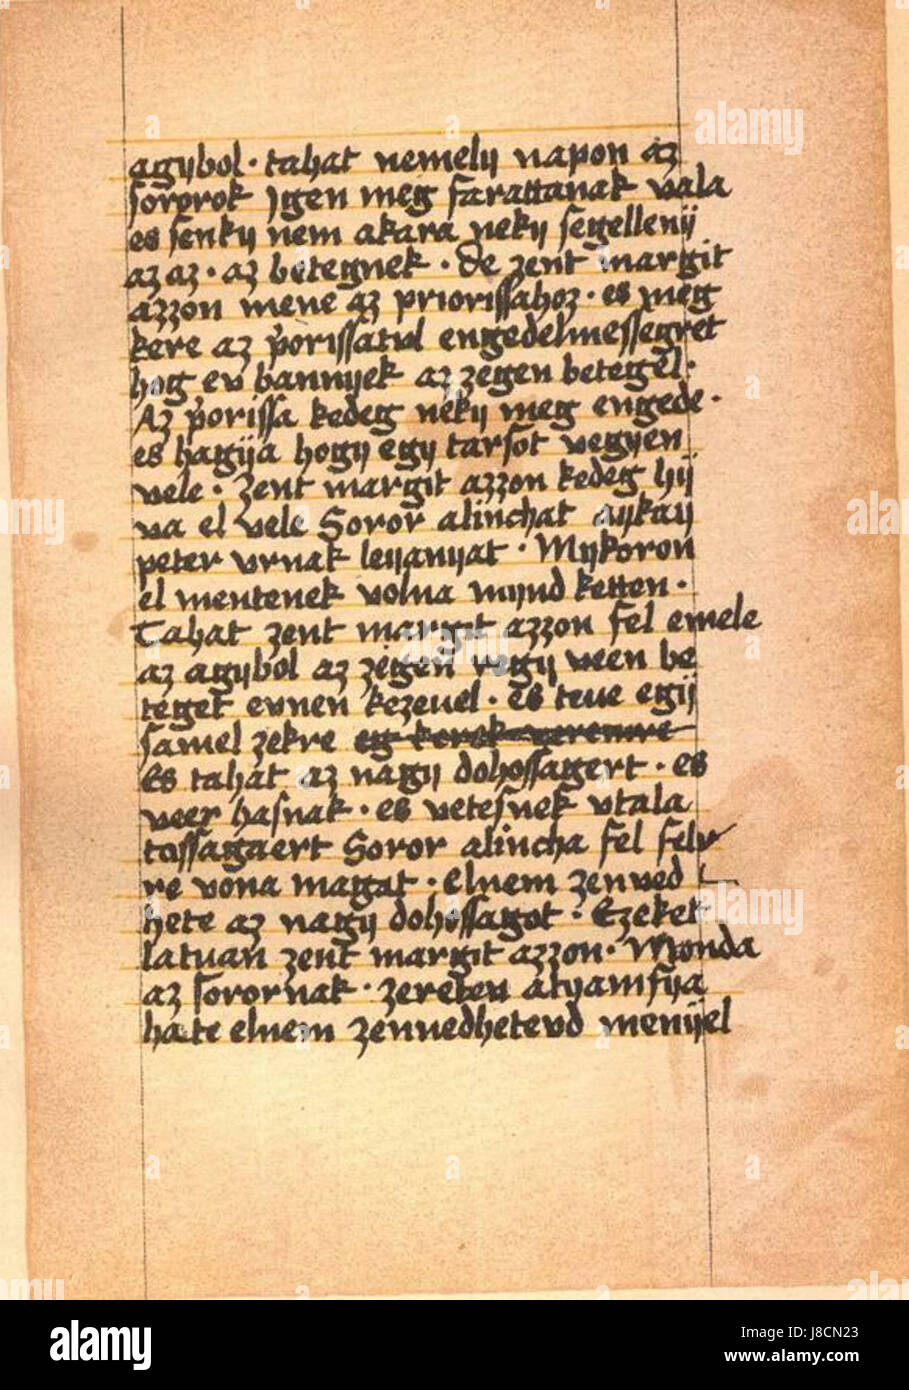 agÿbol · tahat nemelÿ napon az
sororok ÿgen meg farattanak vala
es senkÿ nem akara nekÿ segellenÿ
az az · az betegnek · de zent margit
azzon mene az priorissahoz · es meg
kere az p̓orissatvl engedelmessegret
hog ev bannÿek az zegen betegel ·
Az p̓orissa kedeg nekÿ meg engede ·
es hagÿa hogÿ egÿ tarsot vegÿen
vele · zent margit azzon kedeg hÿ
va el vele Soror alinchat aÿkaÿ
peter vrnak leÿanÿat · Mÿkoron
el mentenek volna mÿnd ketten ·
Tahat zent margit azzon fel emele
az agÿbol az zegen vegÿ veen be
teget evnen kezeuel · es teue egÿ
samel zekre eg kerek veremre
Es tahat az nagÿ dohossagert · es
veer hasnak · es vetesnek vtala
tossagaert Soror alincha fel felv
re vona magat · Elnem zenved
hete az nagÿ dohossagot · Ezeket
latuan zent margit azzon · Monda
az sorornak · zereten atÿamfÿa
ha te elnem zenuedhetevd menÿel
alamy
Image ID: J8CN23
www.alamy.com